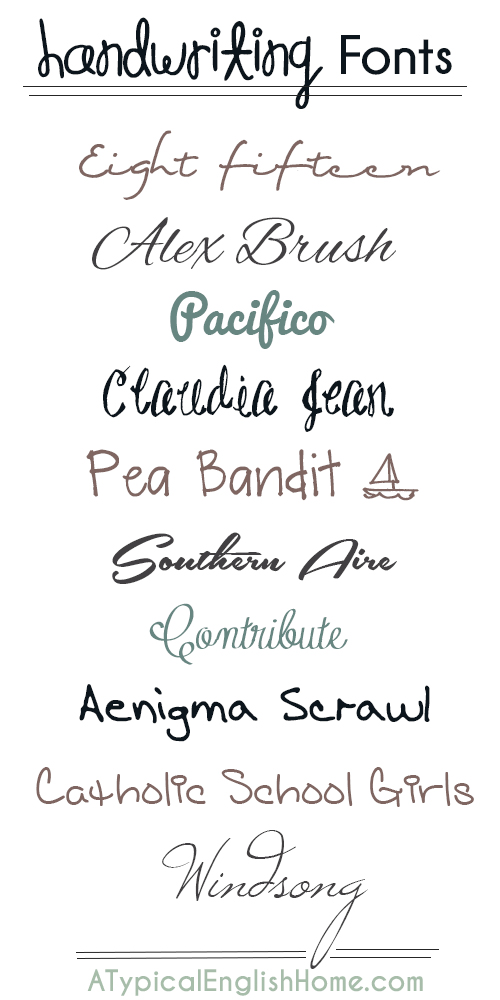 handwriting Fonts
Eight fifteen
Alex Brush
Pacifico
Claudia Jean
Pea Bandit
Southern Aire
Contribute
Aenigma Scrawl
Catholic School Girls
Windsong
ATypicalEnglishHome.com